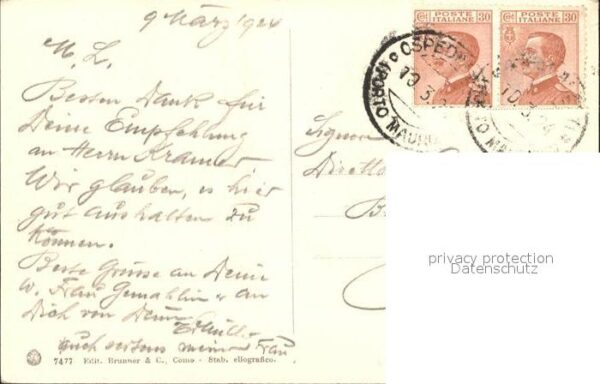 9 März 1924
M. L.
Besten Dank für
Deine Empfehlung
an Herrn Kramer
Wir glauben, es hier
gut aushalten zu
können.
Beste Grüsse an Deine
w. Frau Gemahlin & an
Dich von Deinem
auch seitens meiner Frau
7477 Edit. Brunner & C., Como - Stab. eliografico.
POSTE ITALIANE 30
POSTE ITALIANE 30
OSPED
PORTO MAURI
10.3.24
Signor
Diretto
B
privacy protection
Datenschutz